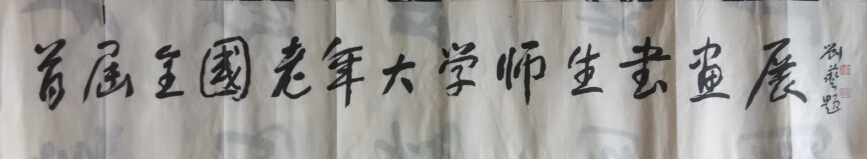 首届全國老年大学师生书画展
刘艺题